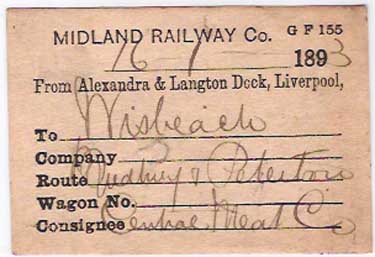 MIDLAND RAILWAY Co. G F 155
16-1 1893
From Alexandra & Langton Dock, Liverpool,
To Wisbeach
Company
Route &
Wagon No.
Consignee Central Meat Co